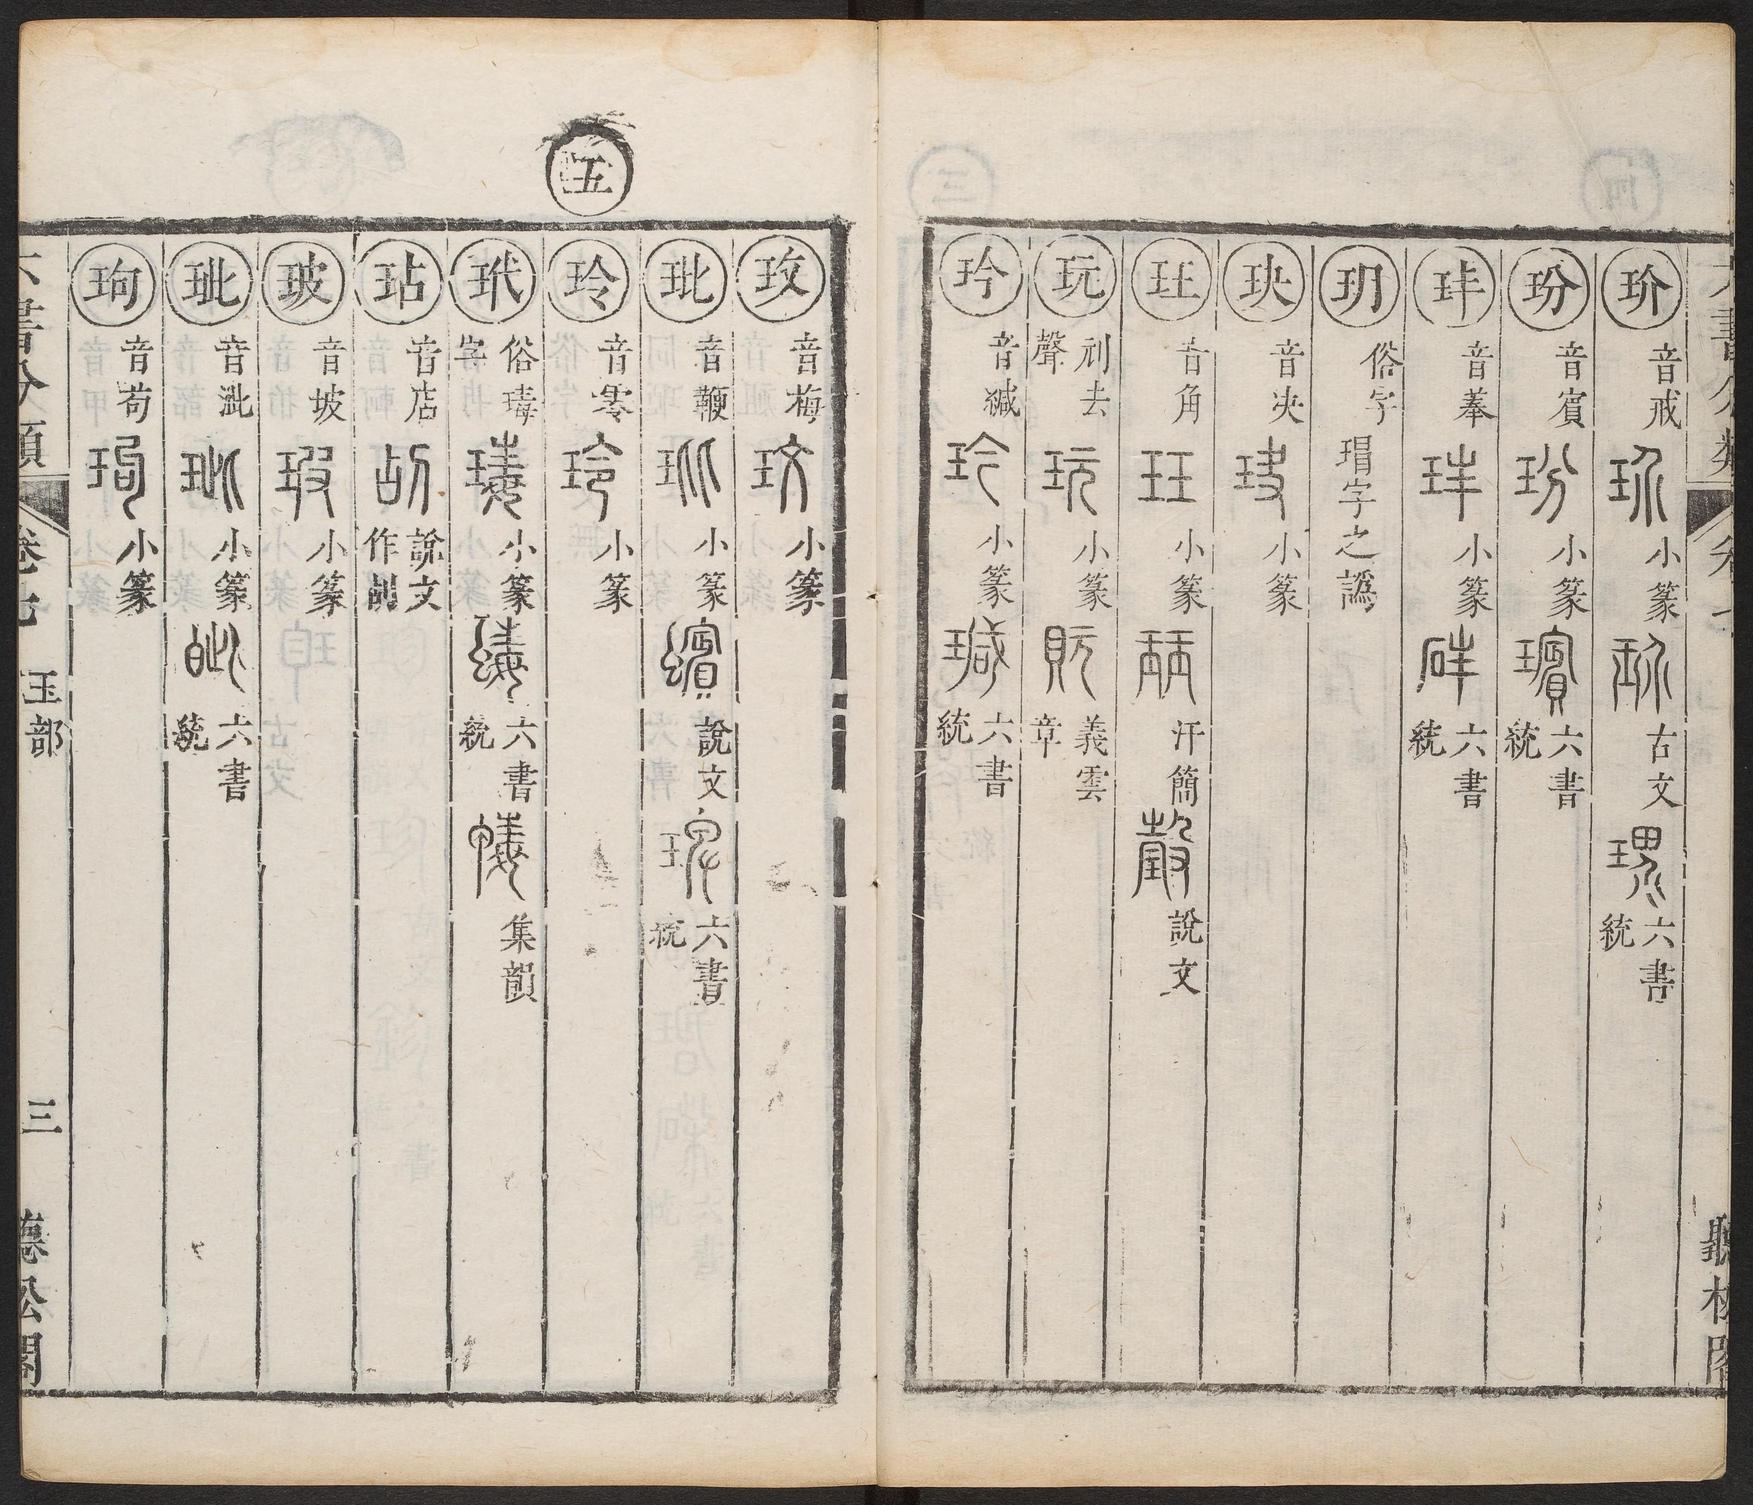 玠 音戒 小篆 古文 六書統
玢 音賓 小篆 六書統
玤 音菶 小篆 六書統
玥 俗字 瑁字之譌
玦 音決 小篆
玨 音角 小篆 汗簡 說文
玩 利去聲 小篆 義雲章
玪 音瑊 小篆 六書統
聽松閣
五
玫 音梅 小篆
玭 音鞭 小篆 說文 六書統
玲 音零 小篆
玳 俗瑇字 小篆 六書統 集韻
玷 音店 說文作㓠
玻 音坡 小篆
玼 音泚 小篆 六書統
玽 音苟 小篆
六書分類 卷七 玉部 三 聽松閣